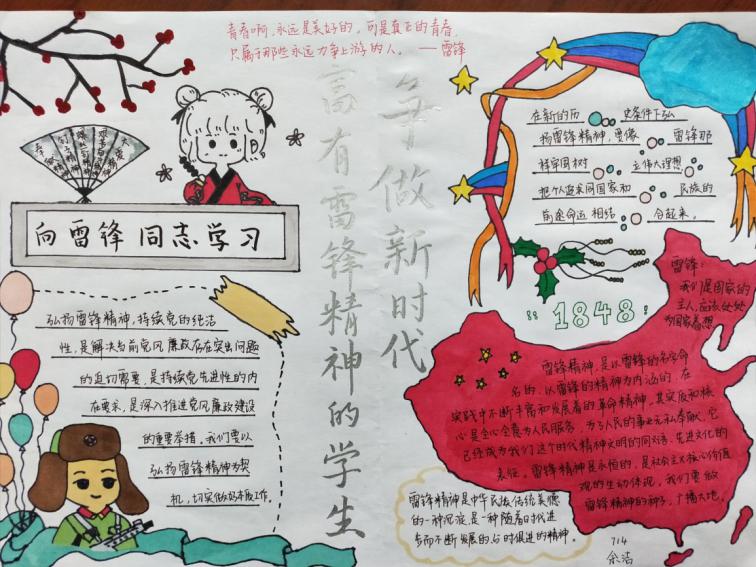 青春啊,永远是美好的,可是真正的青春,
只属于那些永远力争上游的人。——雷锋
向雷锋同志学习
弘扬雷锋精神,持续党的纯洁
性,是解决当前党风廉政存在突出问题
的迫切需要,是持续党先进性的内
在要求,是深入推进党风廉政建设
的重要举措,我们要以
弘扬雷锋精神为契
机,切实做好本质工作。
争做新时代
富有雷锋精神的学生
在新的历史条件下弘
扬雷锋精神,要像雷锋那
样牢固树立伟大理想
把个人追求同国家和民族的
前途命运相结合起来。
"1848"
雷锋:
我们是国家的
主人,应该处处
为国家着想
雷锋精神,是以雷锋的名字命
名的,以雷锋的精神为内涵的,在
实践中不断丰富和发展着的革命精神,其实质和核
心是全心全意为人民服务,为了人民的事业无私奉献,它
已经成为我们这个时代精神文明的同义语、先进文化的
表征。雷锋精神是永恒的,是社会主义核心价值
观的生动体现,我们要做
雷锋精神的种子,广播大地。
雷锋精神是中华民族传统美德
的一种沉淀,是一种随着时代进
步而不断发展的与时俱进的精神。
714
余洁